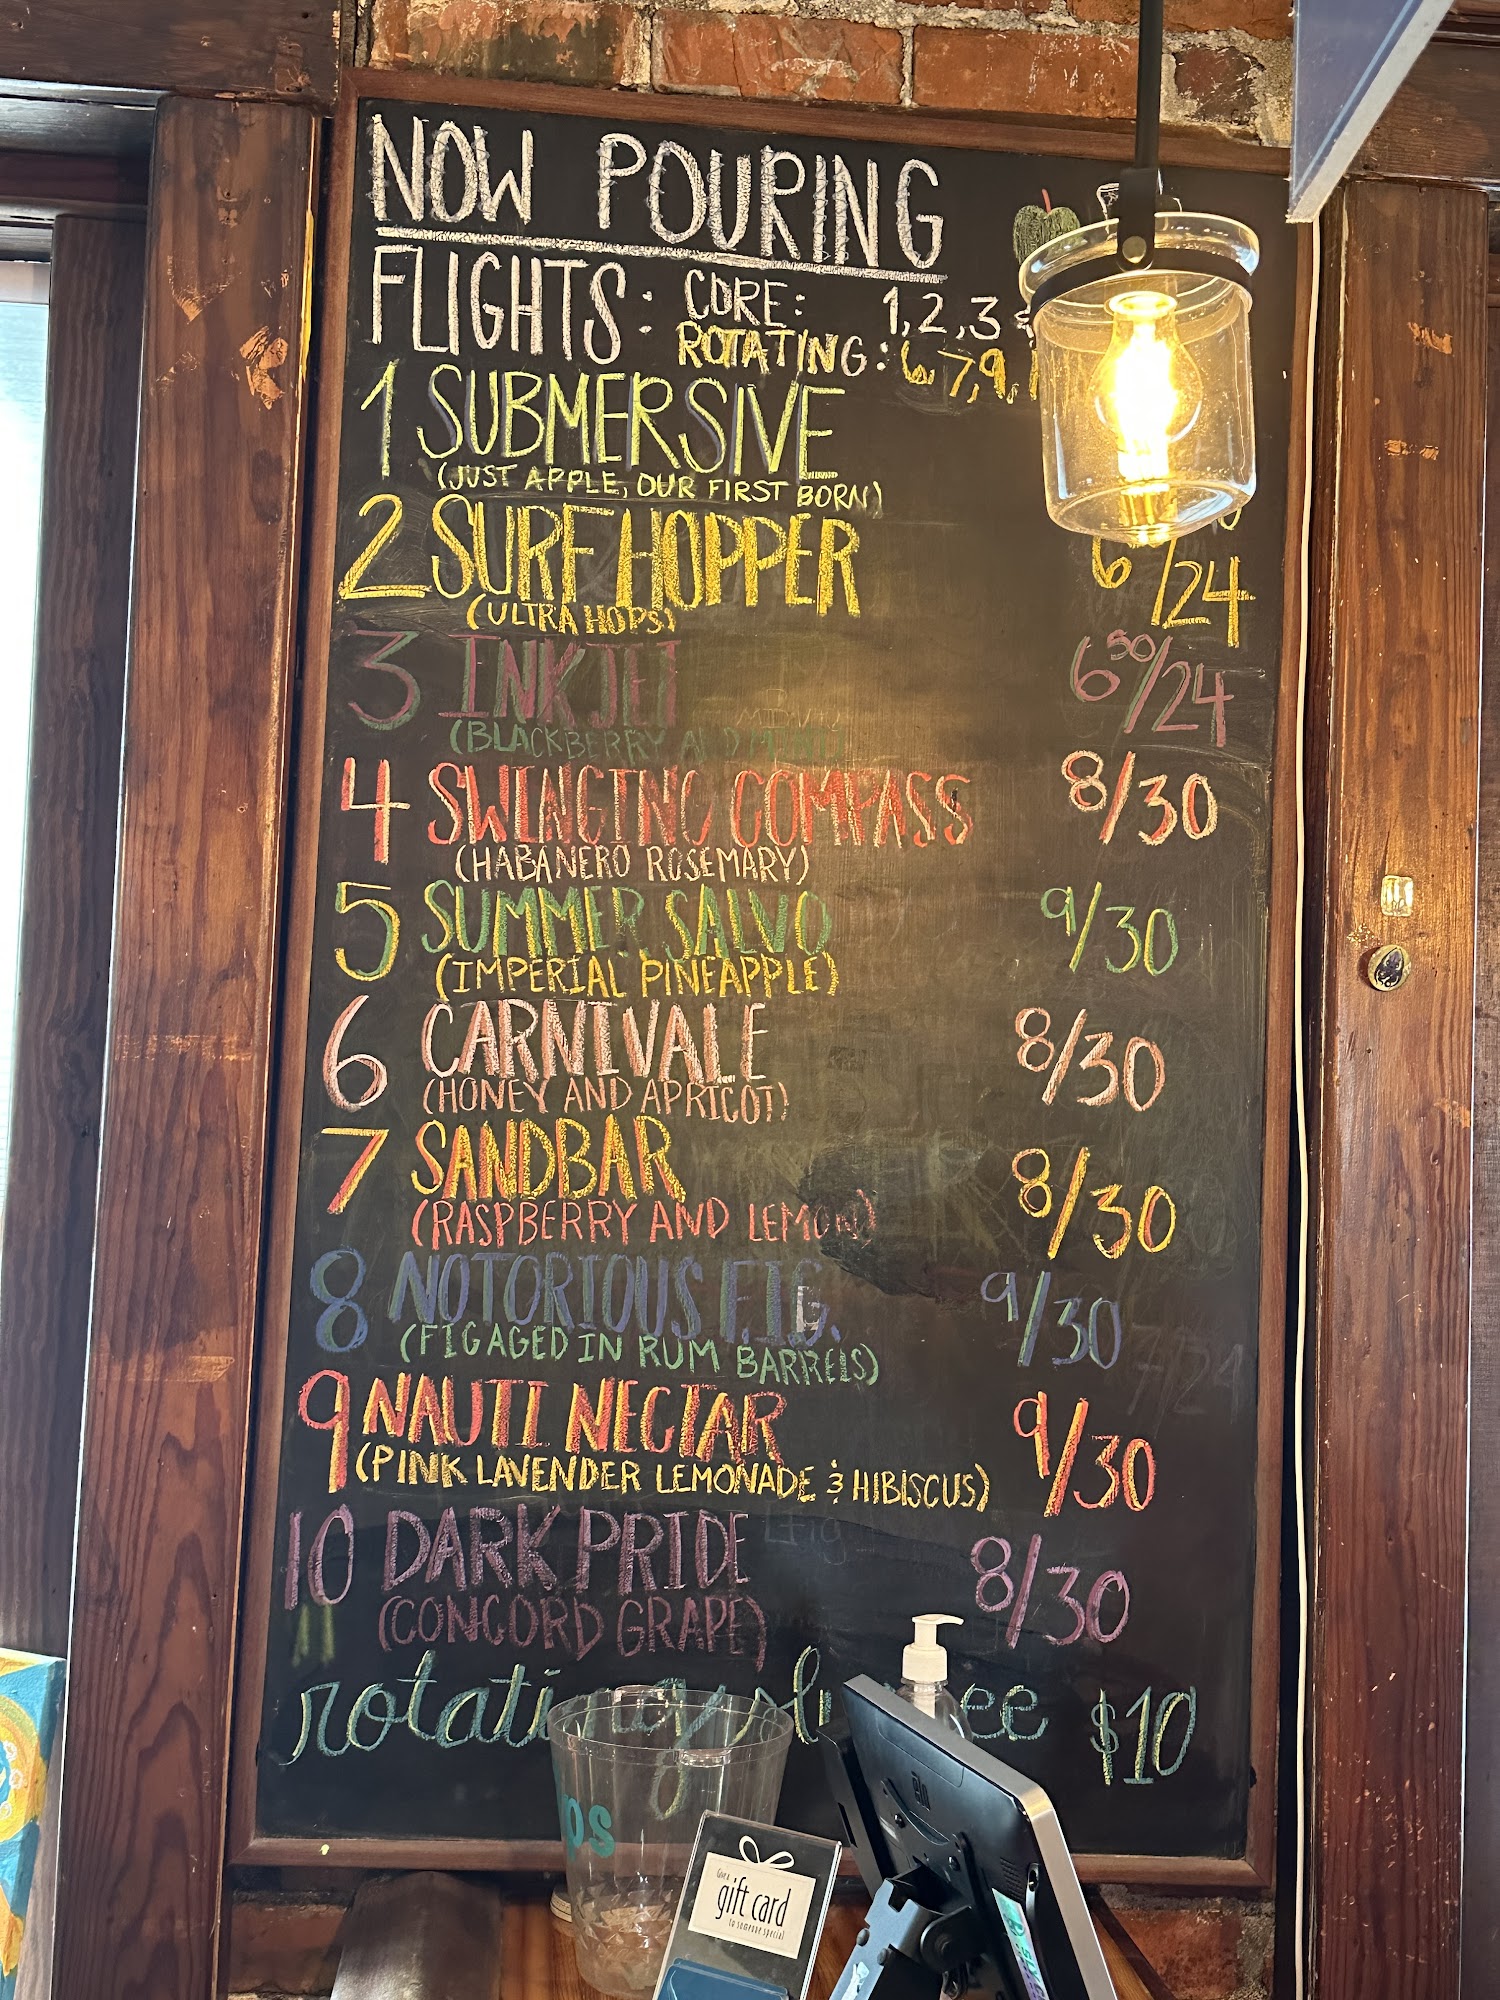 NOW POURING
FLIGHTS: CORE: 1, 2, 3 &
ROTATING: 6, 7, 9,
1 SUBMERSIVE
(JUST APPLE, OUR FIRST BORN)
2 SURF HOPPER 6 /24
(ULTRA HOPS)
3 INKJET 6⁵⁰/24
(BLACKBERRY AND
4 SWINGING COMPASS 8/30
(HABANERO ROSEMARY)
5 SUMMER SALVO 9/30
(IMPERIAL PINEAPPLE)
6 CARNIVALE 8/30
(HONEY AND APRICOT)
7 SANDBAR 8/30
(RASPBERRY AND LEMON)
8 NOTORIOUS F.I.G. 9/30
(FIG AGED IN RUM BARRELS)
9 NAUTI NECTAR 9/30
(PINK LAVENDER LEMONADE & HIBISCUS)
10 DARK PRIDE 8/30
(CONCORD GRAPE)
rotating $10
ps
Give a
gift card
to someone special